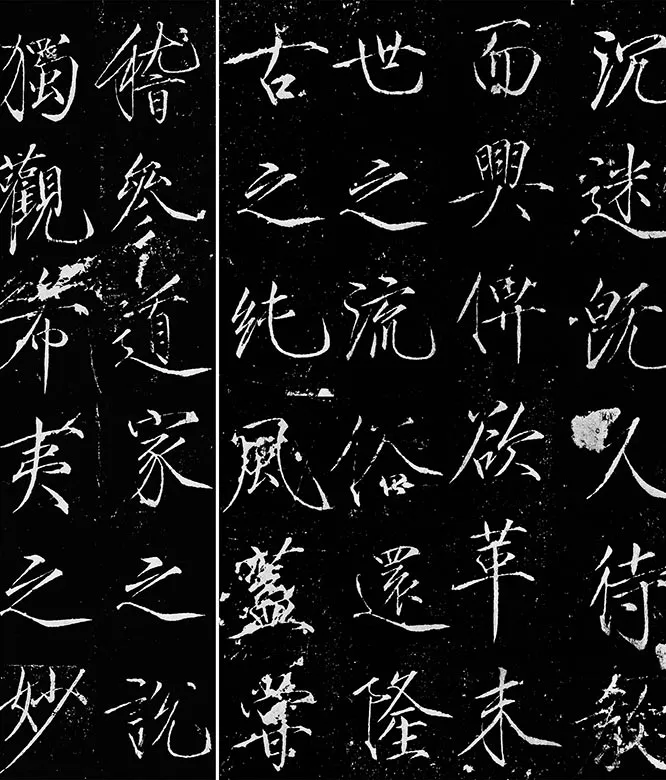 沉迷既人待教
而興俾欲革末
世之流俗還隆
古之純風蓋嘗
稽參道家之說
獨觀希夷之妙